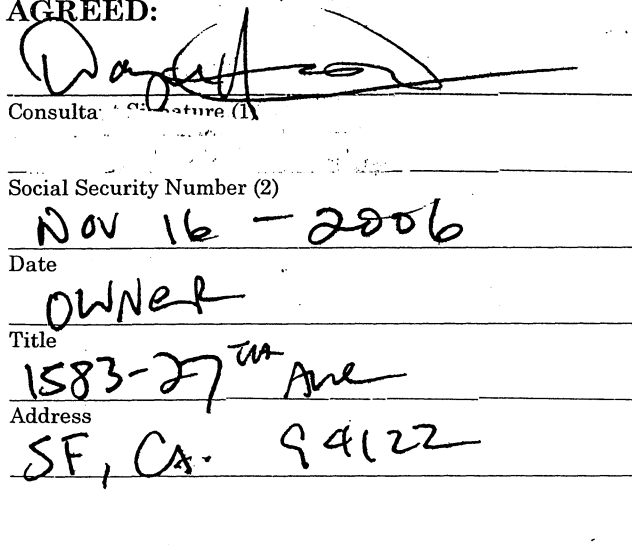 AGREED:
Consultant Signature (1)
Social Security Number (2)
Nov 16 - 2006
Date
OWNER
Title
1583-27TH Ave
Address
SF, CA. 94122